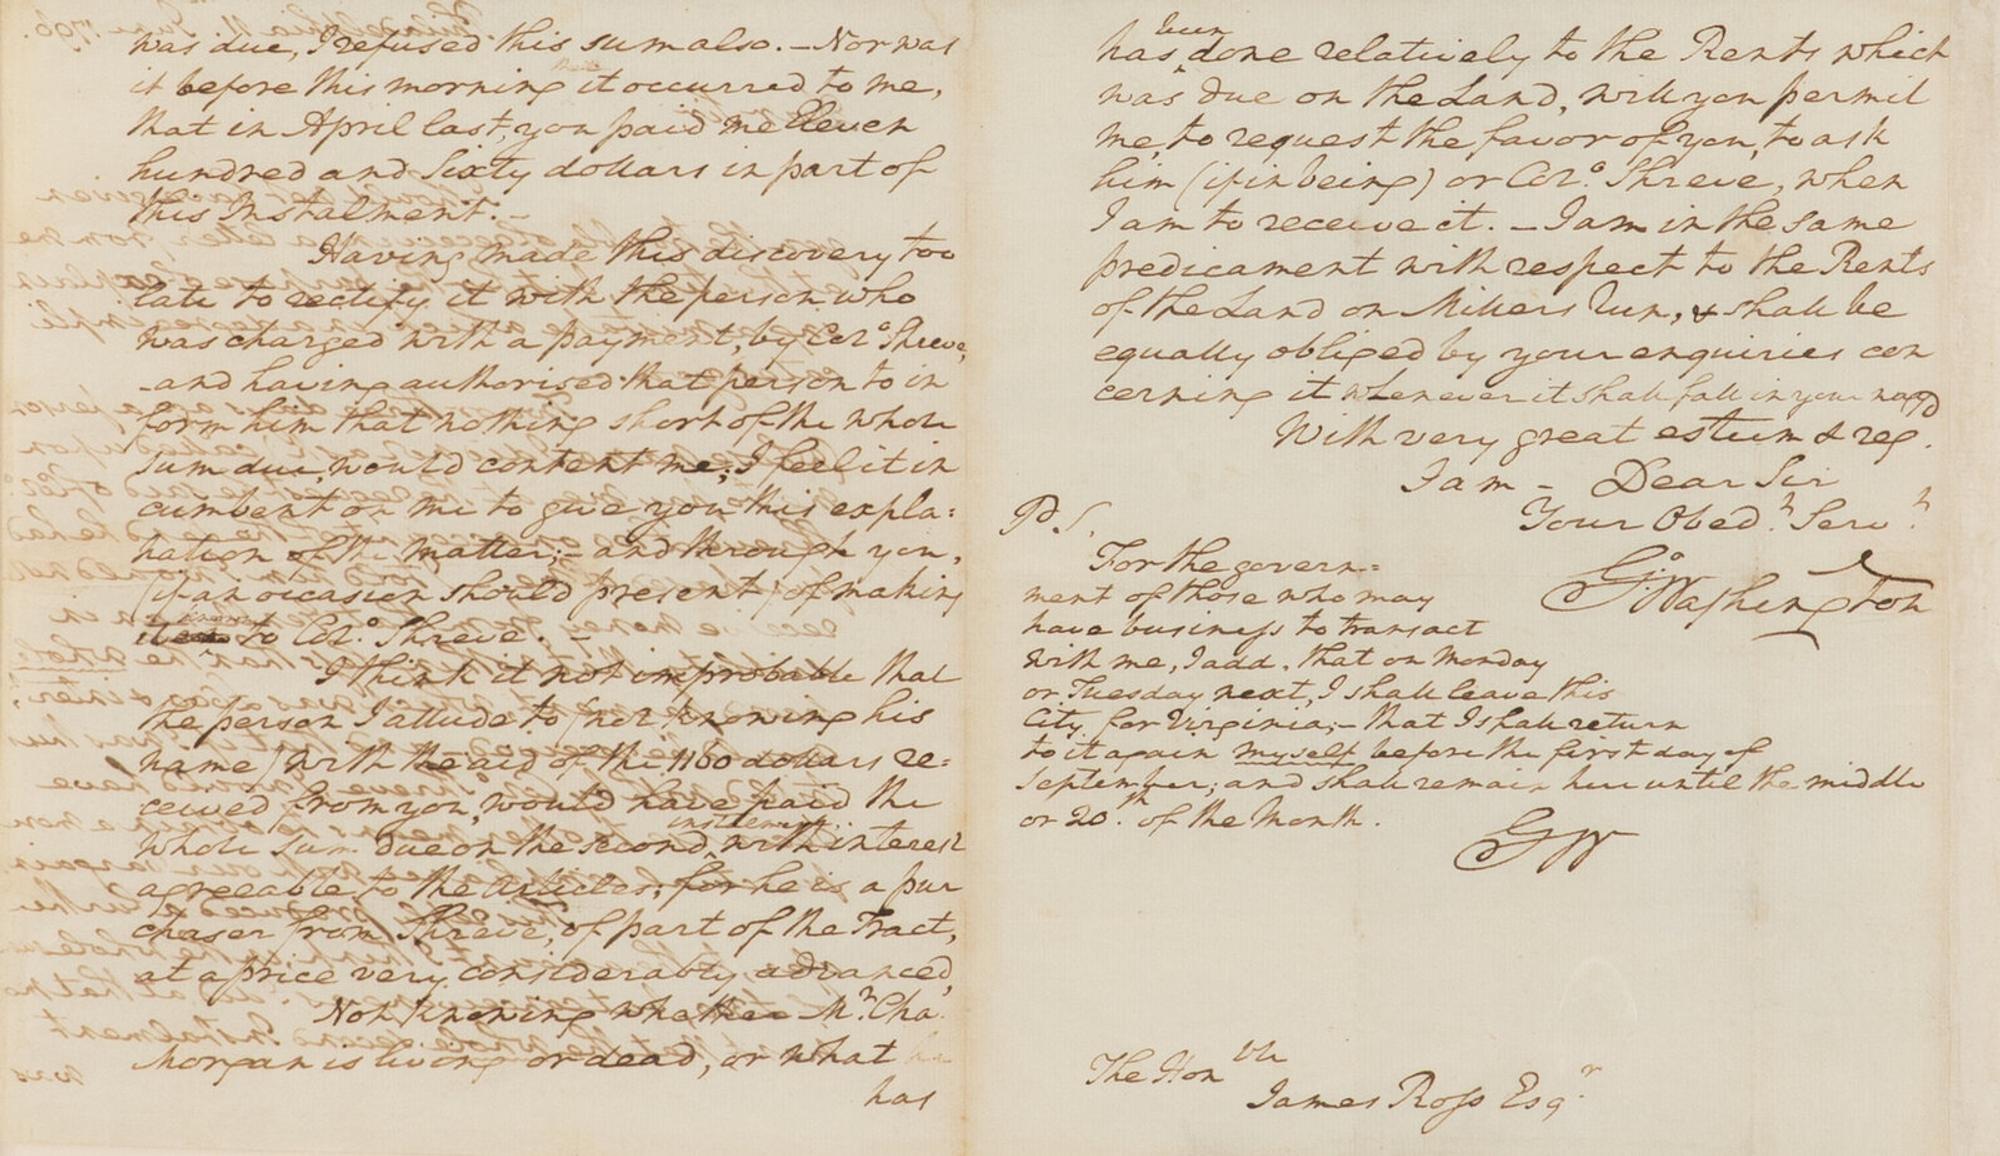 was due, I refused this sum also. – Nor was
it before this morning it occurred to me,
that in April last, you paid me Eleven
hundred and Sixty dollars in part of
this Instalment. –
Having made this discovery too
late to rectify it with the person who
was charged with a payment, by Colo. Shreve,
– and having authorised that person to in
form him that nothing short of the whole
sum due, would content me; I feel it in
cumbent on me to give you this expla=
nation of the matter; – and through you,
(if an occasion should present) of making
it known to Colo. Shreve. –
I think it not improbable that
the person I allude to (not knowing his
name) with the aid of the 1160 dollars re=
ceived from you, would have paid the
whole sum due on the second instalment, with interest
agreeable to the Articles; for he is a pur
chaser from Shreve, of part of the Tract,
at a price very considerably advanced,
Not knowing whether Mr. Cha.
Morgan is living or dead, or what
has
has been done relatively to the Rents which
was due on the Land, will you permit
me, to request the favor of you, to ask
him (if in being) or Colo. Shreve, when
I am to receive it. – I am in the same
predicament with respect to the Rents
of the Land on Millers Run, & shall be
equally obliged by your enquiries con
cerning it whenever it shall fall in your way
With very great esteem & regd.
I am – Dear Sir
Your Obedt. Servt.
Go: Washington
P.S.
For the govern=
ment of those who may
have business to transact
with me, I add, that on Monday
or Tuesday next, I shall leave this
City for Virginia; – that I shall return
to it again myself before the first day of
September; and shall remain here until the middle
or 20th. of the Month.
GW
The Honble
James Ross Esqr.